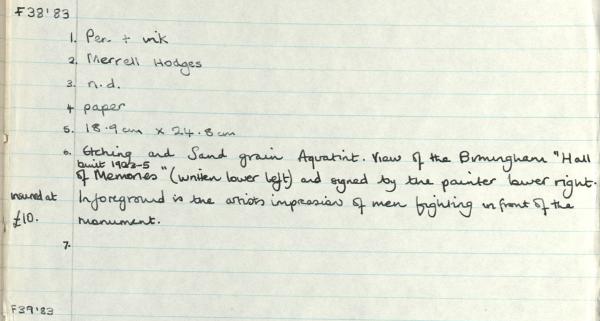 F38'83
1. Pen + ink
2. Merrell Hodges
3. n.d.
4 paper
5. 18.9cm x 24.8cm
6. Etching and Sand grain Aquatint. View of the Birmingham "Hall
built 1922-5
of Memories" (written lower left) and signed by the painter lower right.
insured at In foreground is the artists impression of men fighting in front of the
£10. monument.
7.
F39'83